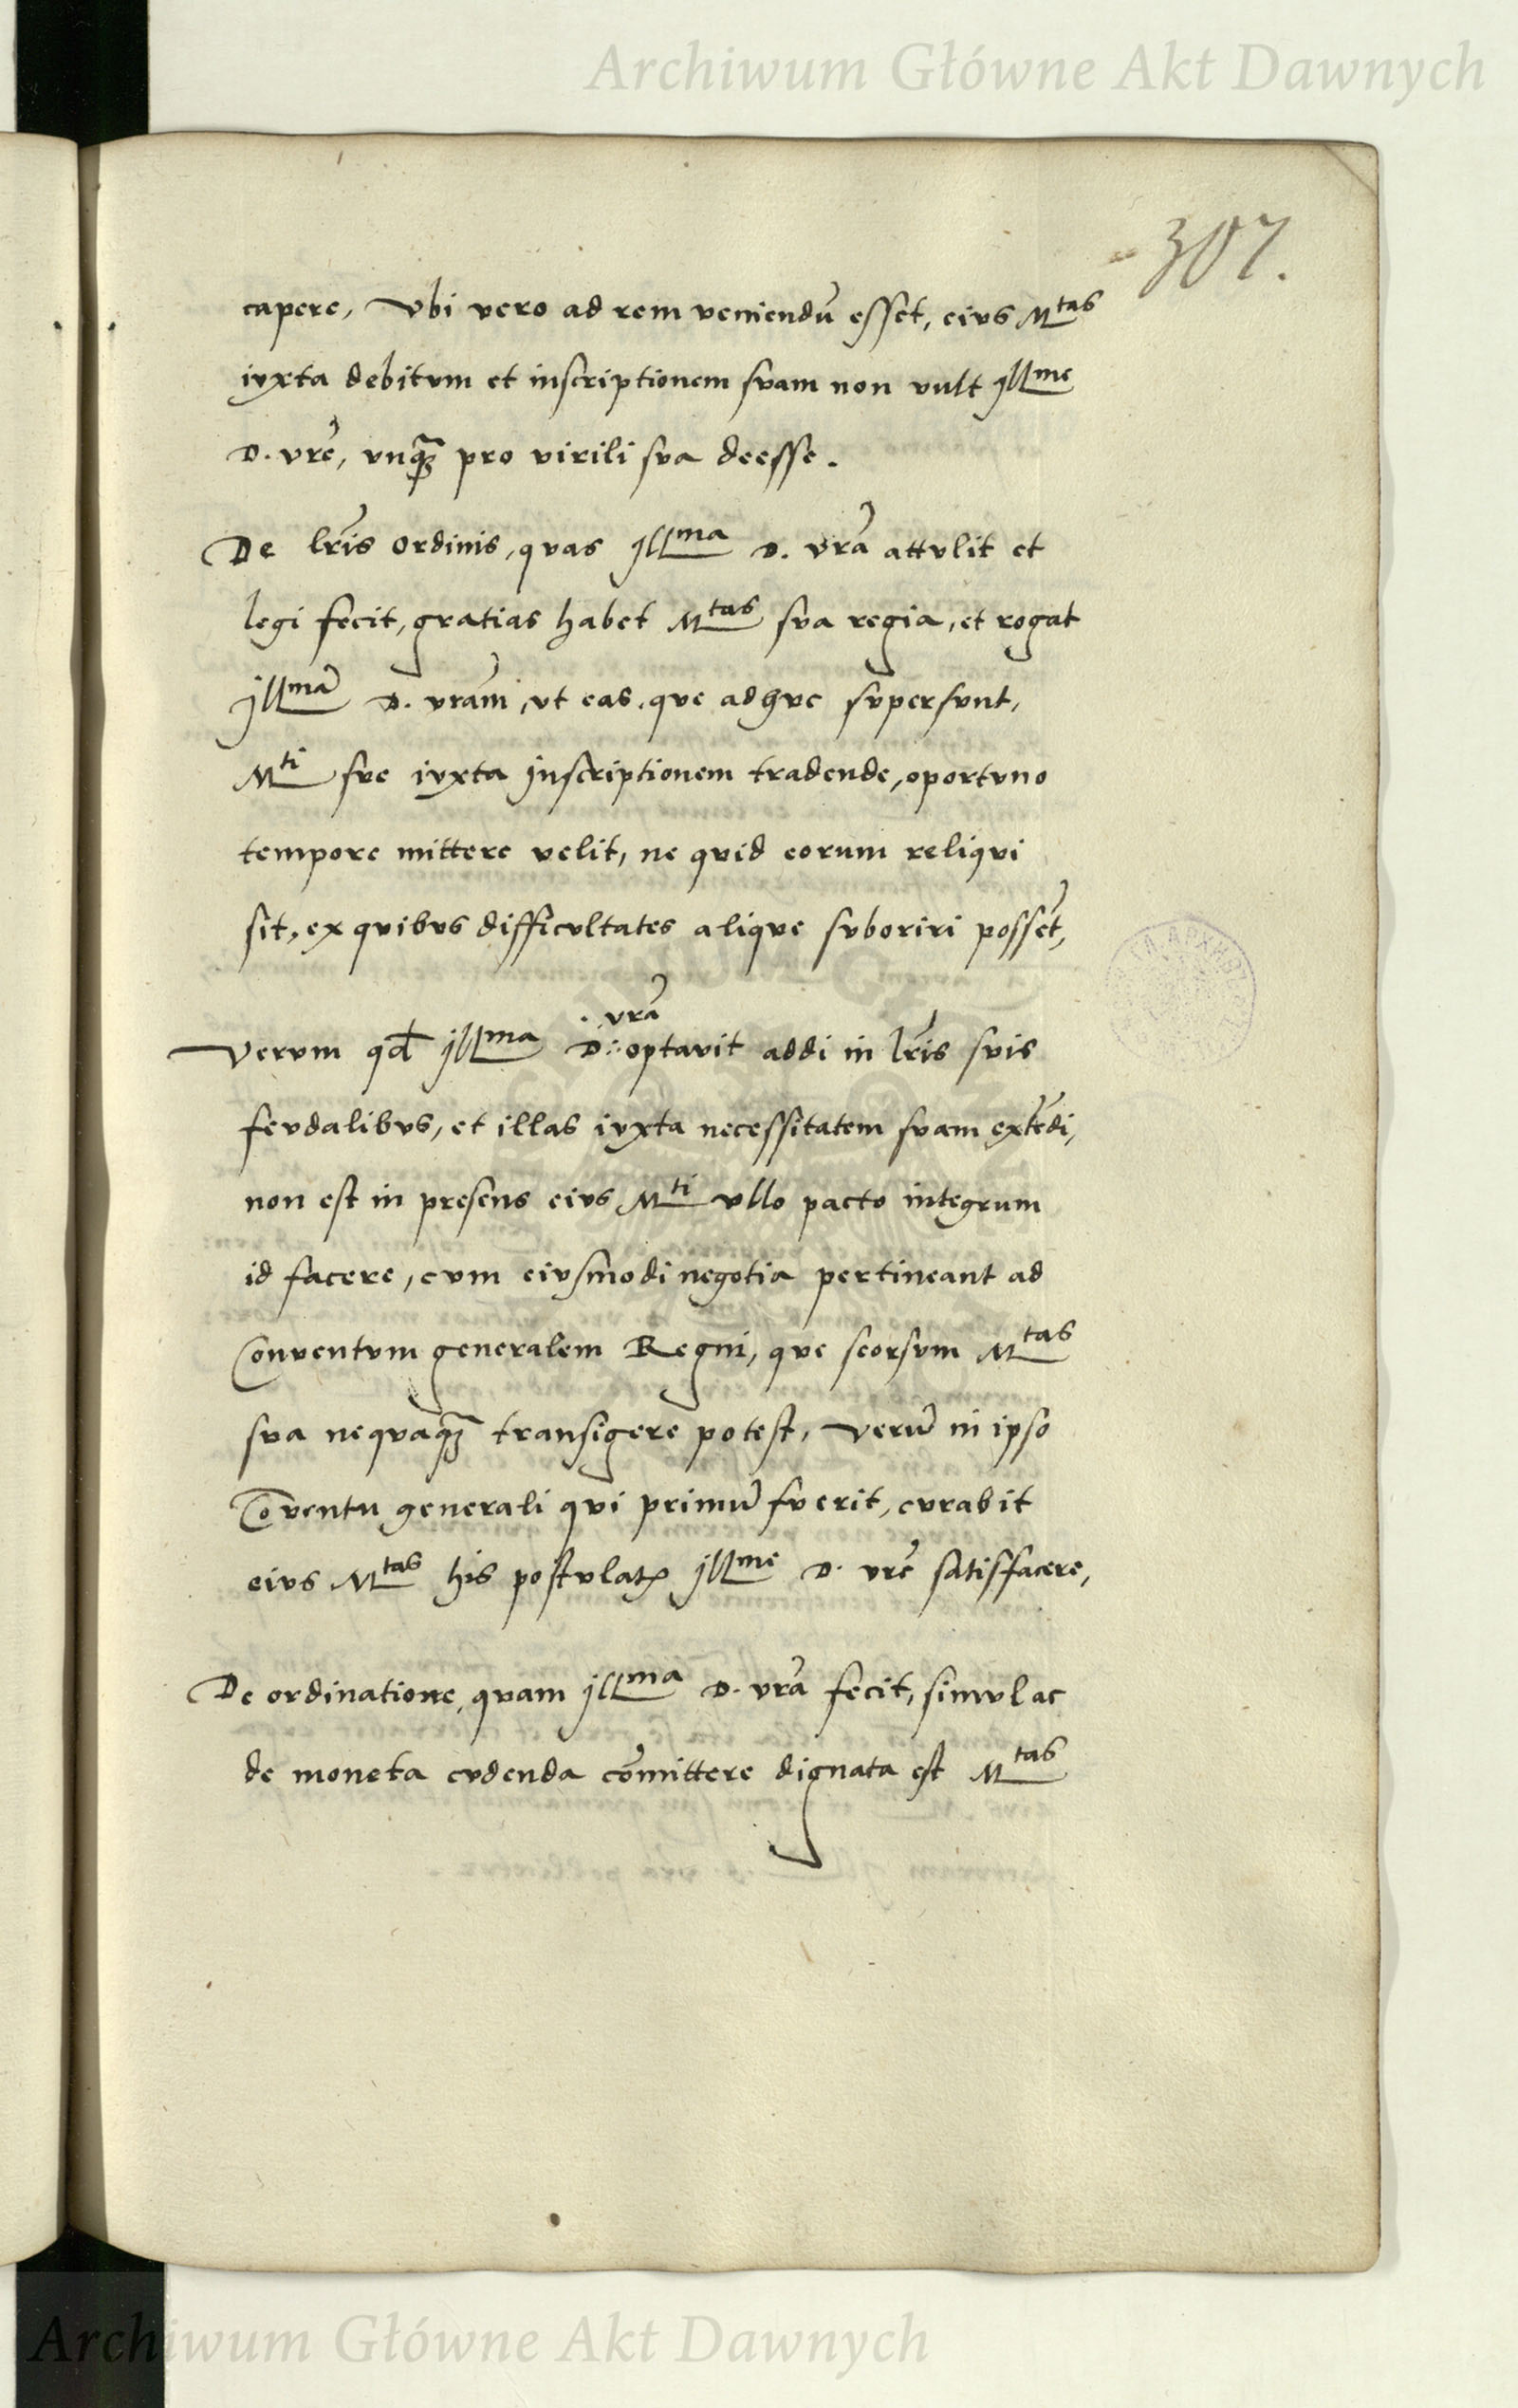 Archiwum Główne Akt Dawnych
307.
capere, Vbi vero ad rem veniendū esset, eius M^tas
iuxta debitum et inscriptionem suam non vult Ill^me
D. vrē, vnq̄ȝ pro virili sua deesse.
De lr̄is ordinis, quas Ill^ma D. vrā attulit et
legi fecit, gratias habet M^tas sua regia, et rogat
Ill^mā D. vrām, ut eas, que adhuc supersunt,
M^ti sue iuxta inscriptionem tradende, oportuno
tempore mittere velit, ne quid eorum reliqui
sit, ex quibus difficultates alique suboriri possēt,
Verum qd Ill^ma D. vrā optauit addi in lr̄is suis
feudalibus, et illas iuxta necessitatem suam extēdi,
non est in presens eius M^ti vllo pacto integrum
id facere, cum eiusmodi negotia pertineant ad
Conuentum generalem Regni, que seorsum M^tas
sua nequaq̄ȝ transigere potest, Verū in ipso
Cōuentu generali qui primū fuerit, curabit
eius M^tas his postulatꝭ Ill^me D. vrē satisfacere,
De ordinatione, quam Ill^ma D. vrā fecit, simul ac
de moneta cudenda cōmittere dignata est M^tas
Archiwum Główne Akt Dawnych